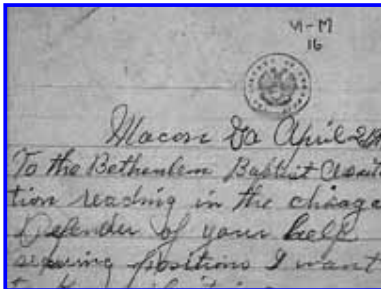 VI-M
16
Macon Ga April 2
To the Bethenlem Baptist
tion reading in the chicago
Defender of your help
securing positions I want